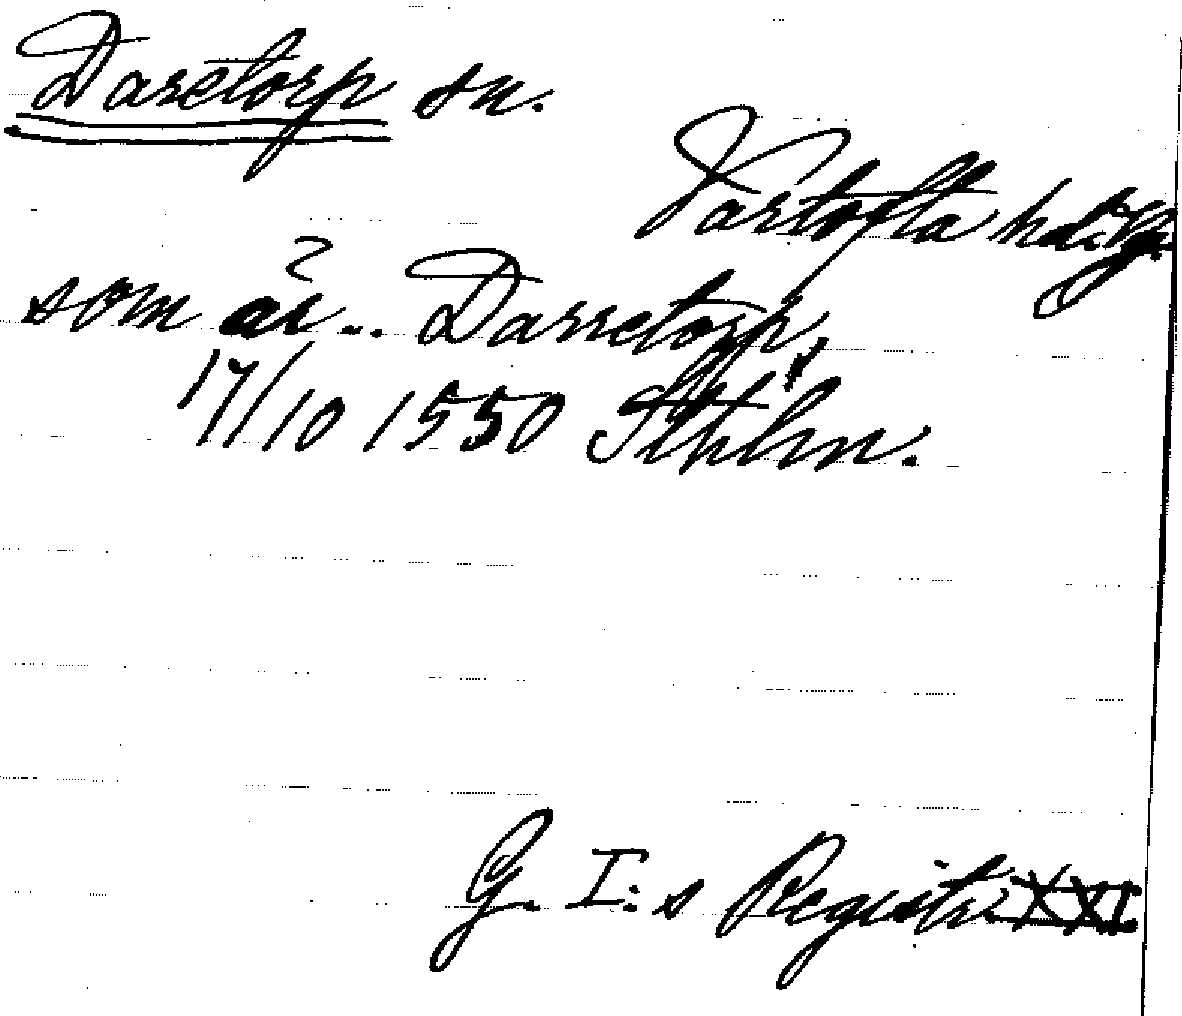 Daretorp sn.
Vartofta hd. Vg.
som är .. Darretorp,
17/10 1550 Sthlm.
G. I:s Registr. XXI.